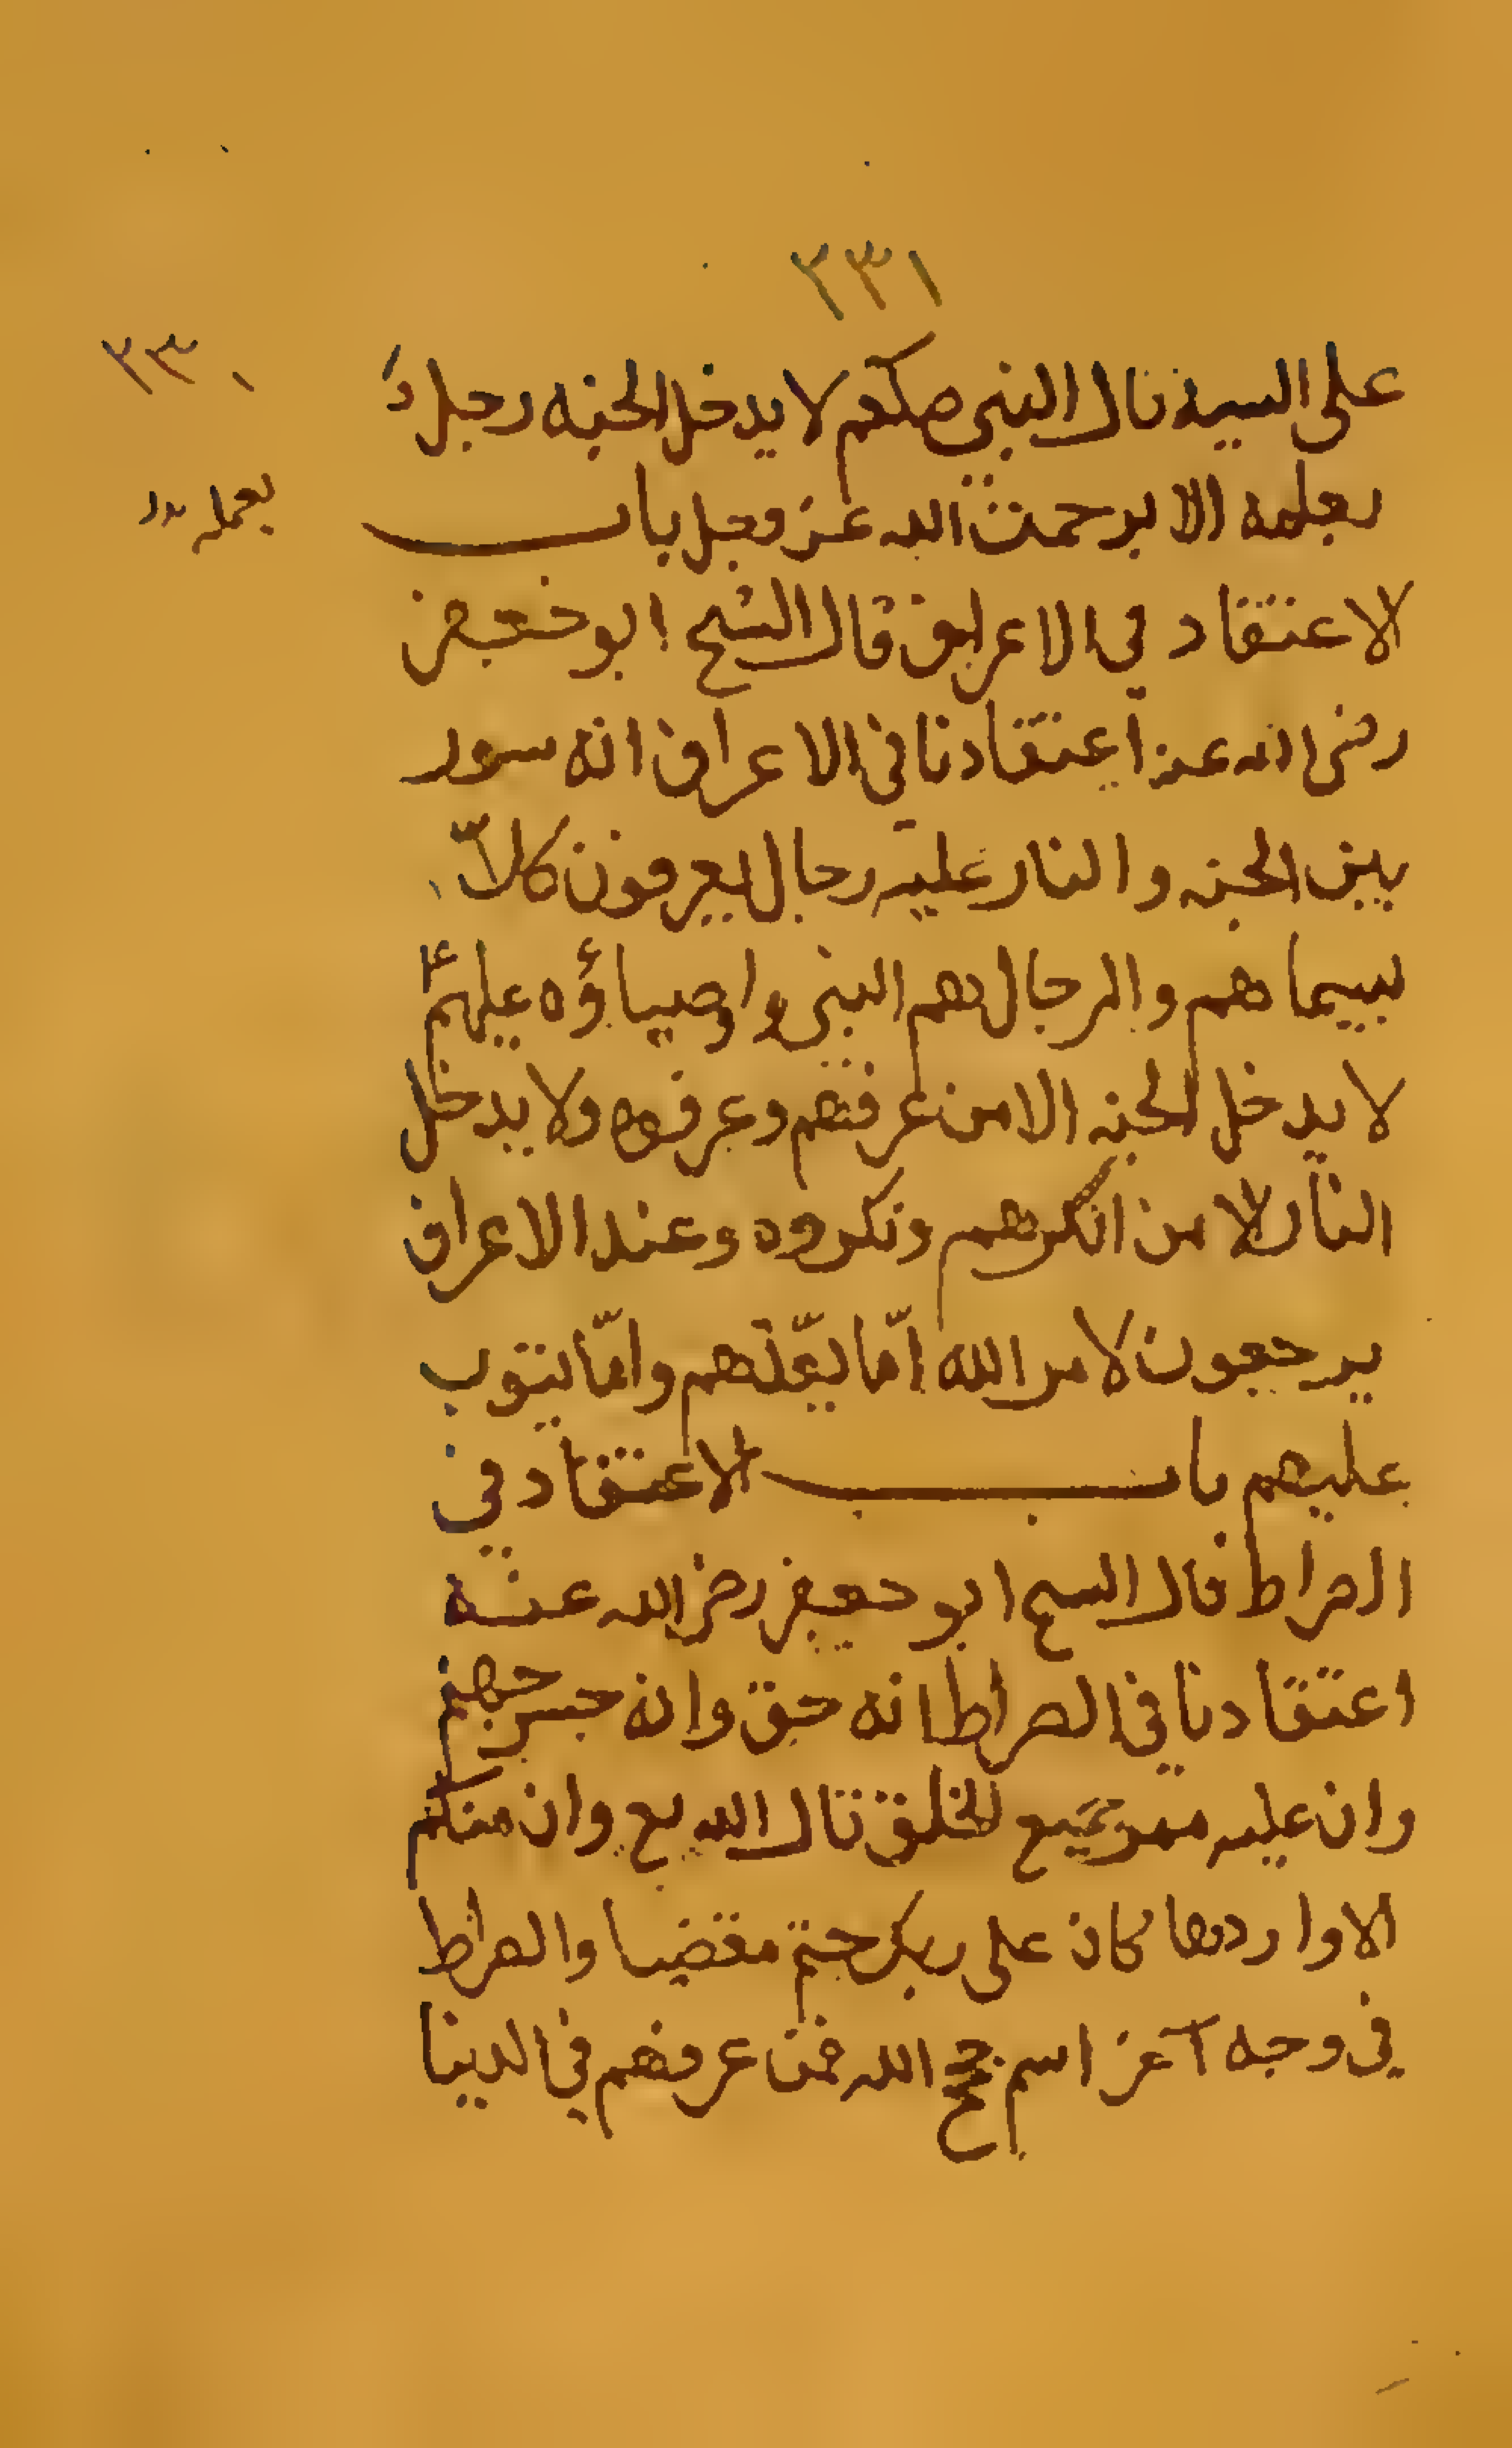 ٢٣١
على السيه قال النبي صلعم لا يدخل الجنه رجل
٢٣٠
بعلمه الا برحمت الله عز وجل باب
بعمله
لاعتقاد في الاعراف قال الشيخ ابو جعفر
رضى الله عنه اعتقادنا في الاعراف انه سور
بين الجنه والنار عليه رجال يعرفون كلا
بسيماهم والرجال هم النبي واوصياؤه عليهم
لا يدخل الجنه الا من عرفهم وعرفوه ولا يدخل
النار الا من انكرهم ونكروه وعند الاعراف
يرجعون لامر الله امّا يعذّبهم وامّا يتوب
عليهم باب الاعتقاد في
الصراط قال الشيخ ابو جعفر رضي الله عنه
اعتقادنا في الصراط انه حق وانه جسر جهنم
وان عليه ممر جميع الخلق قال الله تع وان منكم
الا واردها كان على ربك حتم مقضيا والصراط
في وجه آخر اسم حجج الله فمن عرفهم في الدينا